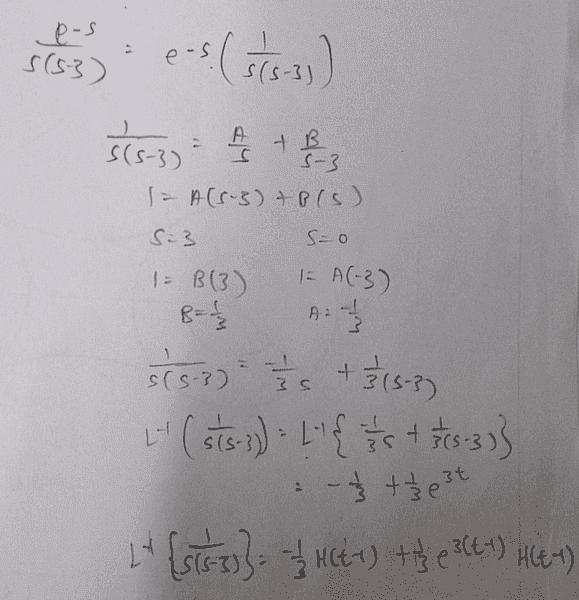 e^-s / s(s-3) = e^-s. ( 1 / s(s-3) )
1 / s(s-3) = A/s + B/s-3
1 = A(s-3) + B(s)
s=3 s=0
1= B(3) 1= A(-3)
B=1/3 A= -1/3
1 / s(s-3) = -1/3s + 1/3(s-3)
L^-1 ( 1 / s(s-3) ) = L^-1 { -1/3s + 1/3(s-3) }
= -1/3 + 1/3 e^3t
L^-1 { 1 / s(s-3) } = -1/3 H(t-1) + 1/3 e^3(t-1) H(t-1)